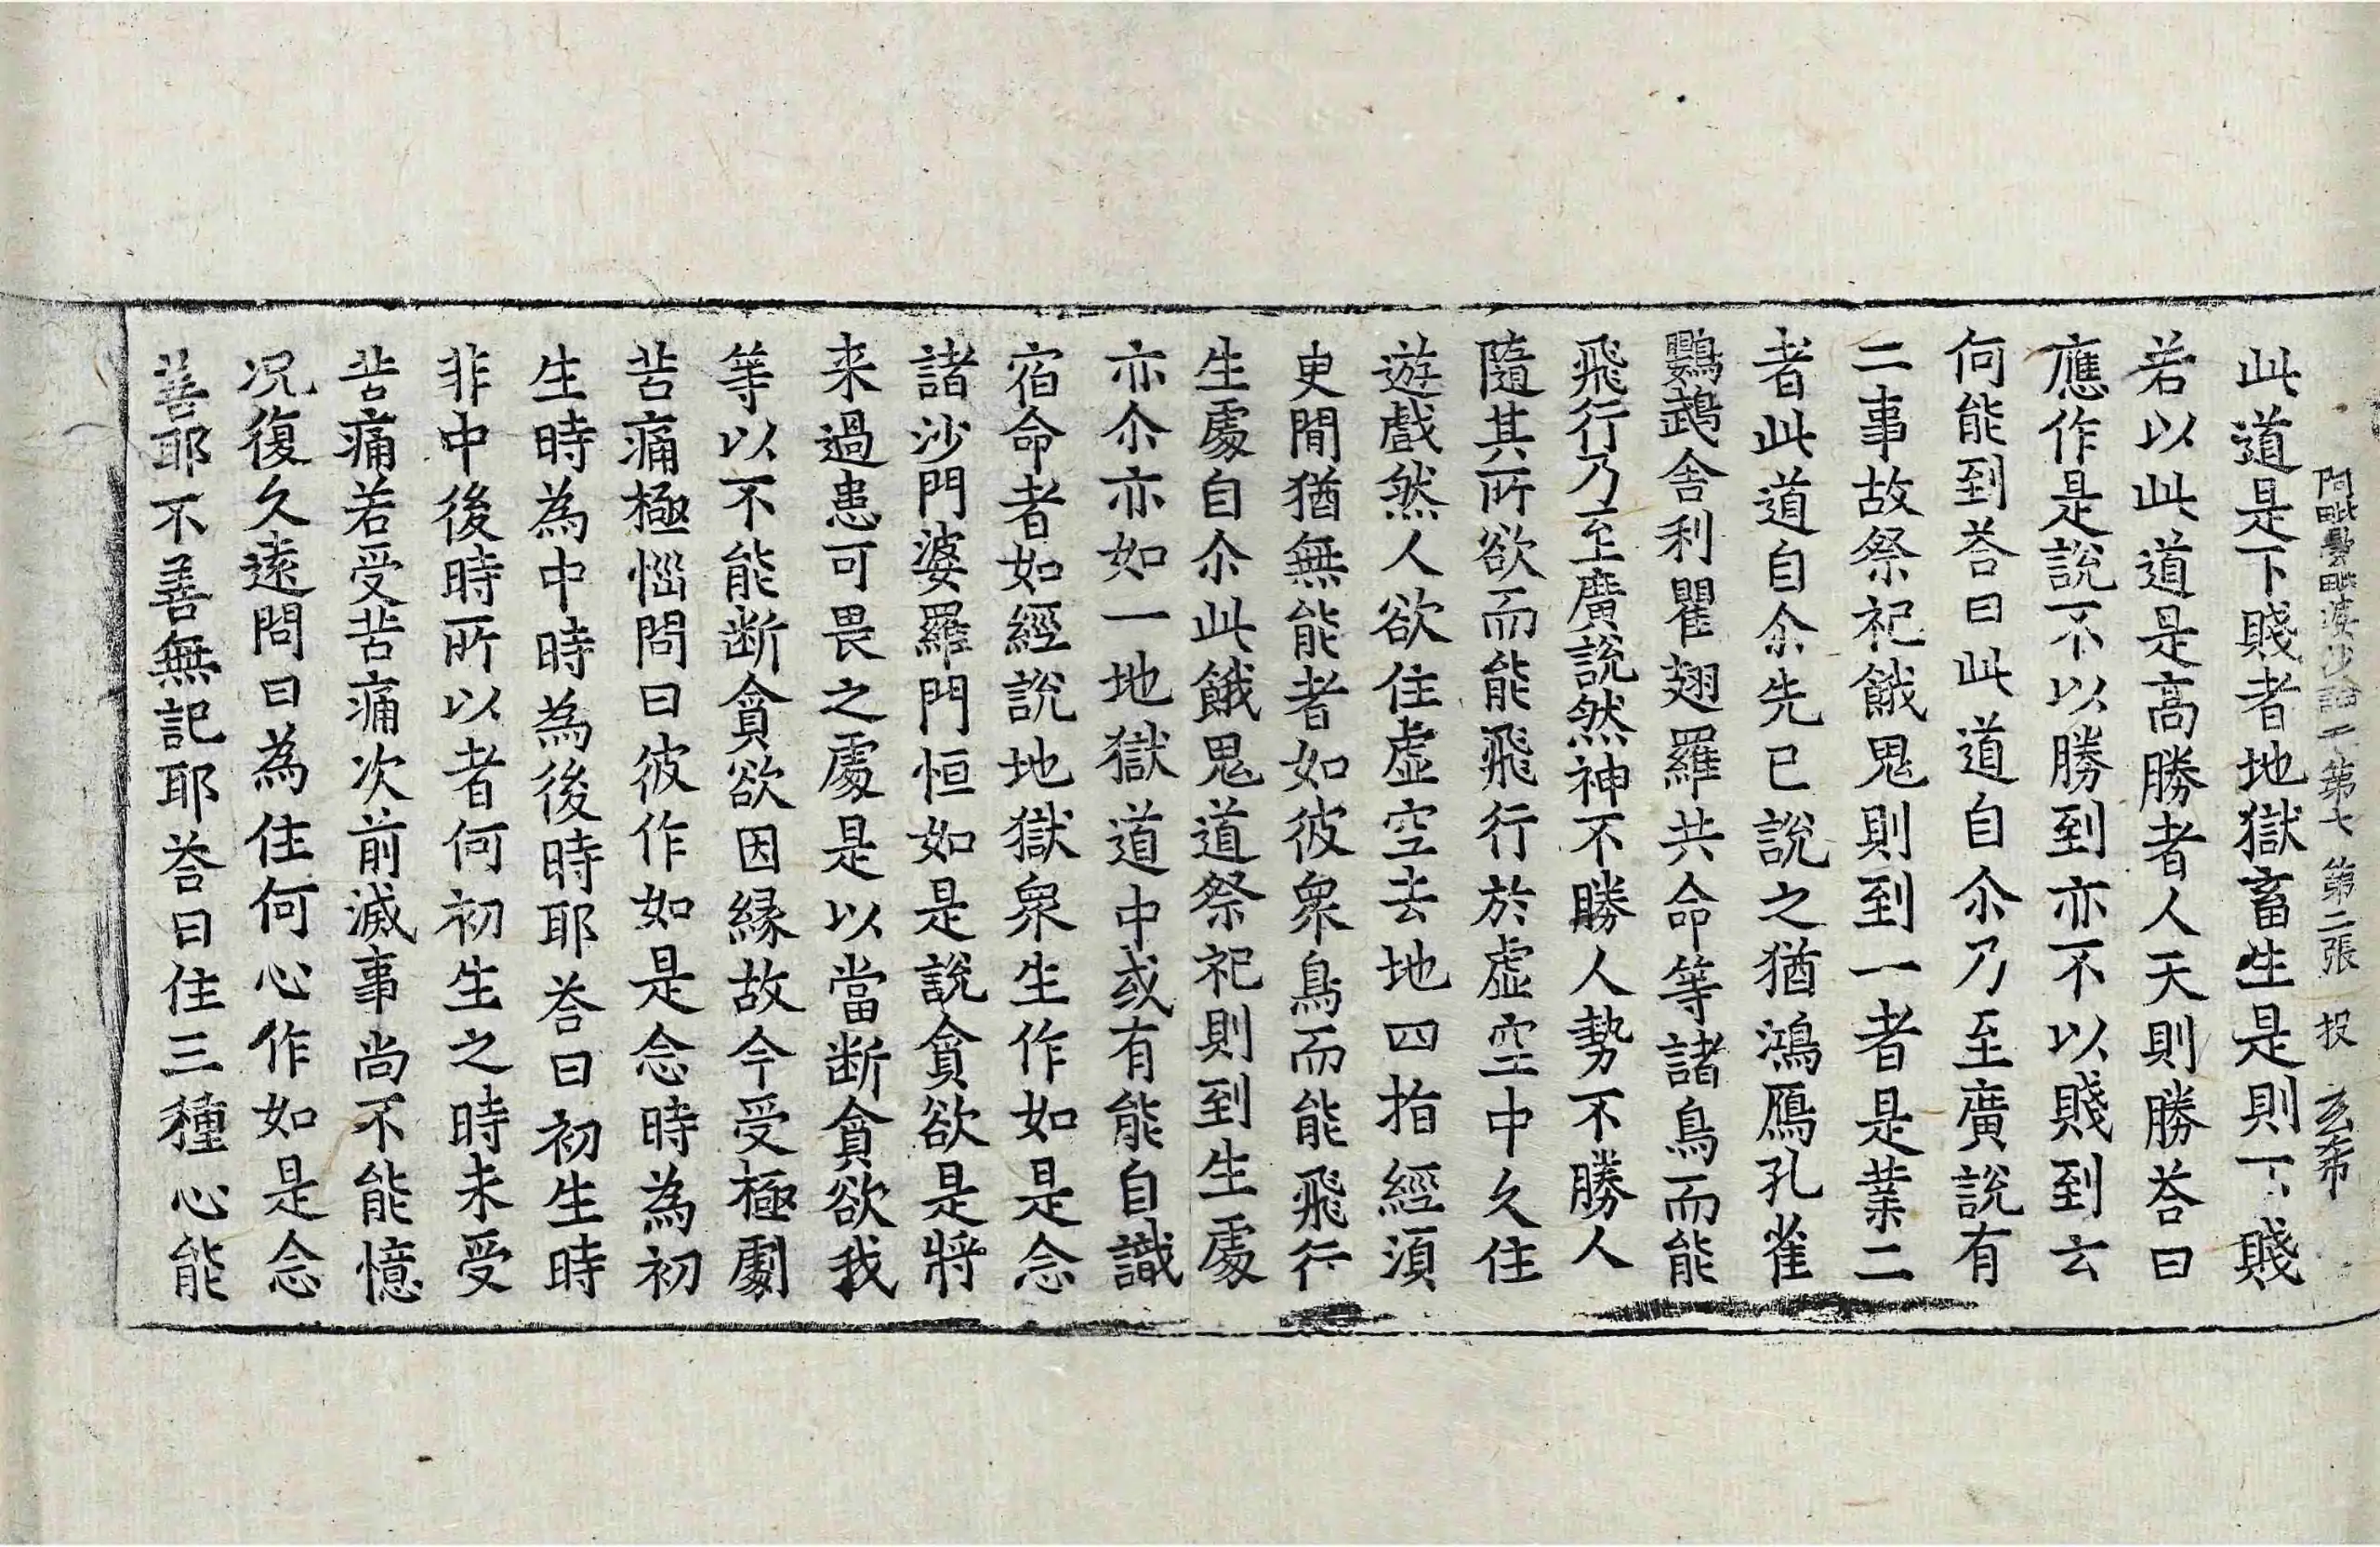 阿毗曇毗婆沙論二第七 第二張 投 玄希
此道是下賤者地獄畜生是則下賤
若以此道是高勝者人天則勝荅曰
應作是說不以勝到亦不以賤到云
何能到荅曰此道自尒乃至廣說有
二事故祭祀餓鬼則到一者是業二
者此道自尒先已說之猶鴻鴈孔雀
鸚鵡舍利瞿翅羅共命等諸鳥而能
飛行乃至廣說然神不勝人勢不勝人
隨其所欲而能飛行於虛空中久住
遊戲然人欲住虛空去地四指經須
史閒猶無能者如彼衆鳥而能飛行
生處自尒此餓鬼道祭祀則到生處
亦尒亦如一地獄道中或有能自識
宿命者如經說地獄衆生作如是念
諸沙門婆羅門恒如是說貪欲是將
来過患可畏之處是以當断貪欲我
等以不能断貪欲因縁故今受極劇
苦痛極惱問曰彼作如是念時為初
生時為中時為後時耶荅曰初生時
非中後時所以者何初生之時未受
苦痛若受苦痛次前滅事尚不能憶
况復久遠問曰為住何心作如是念
善耶不善無記耶荅曰住三種心能